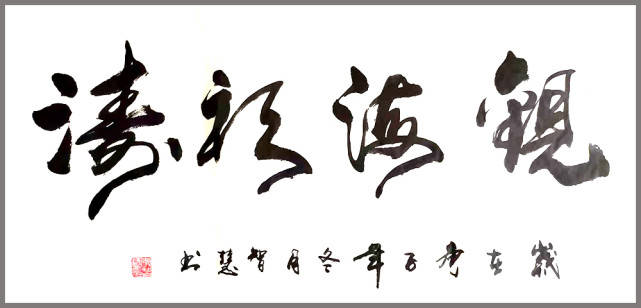 觀海聽濤
歲在庚子年冬月智慧书